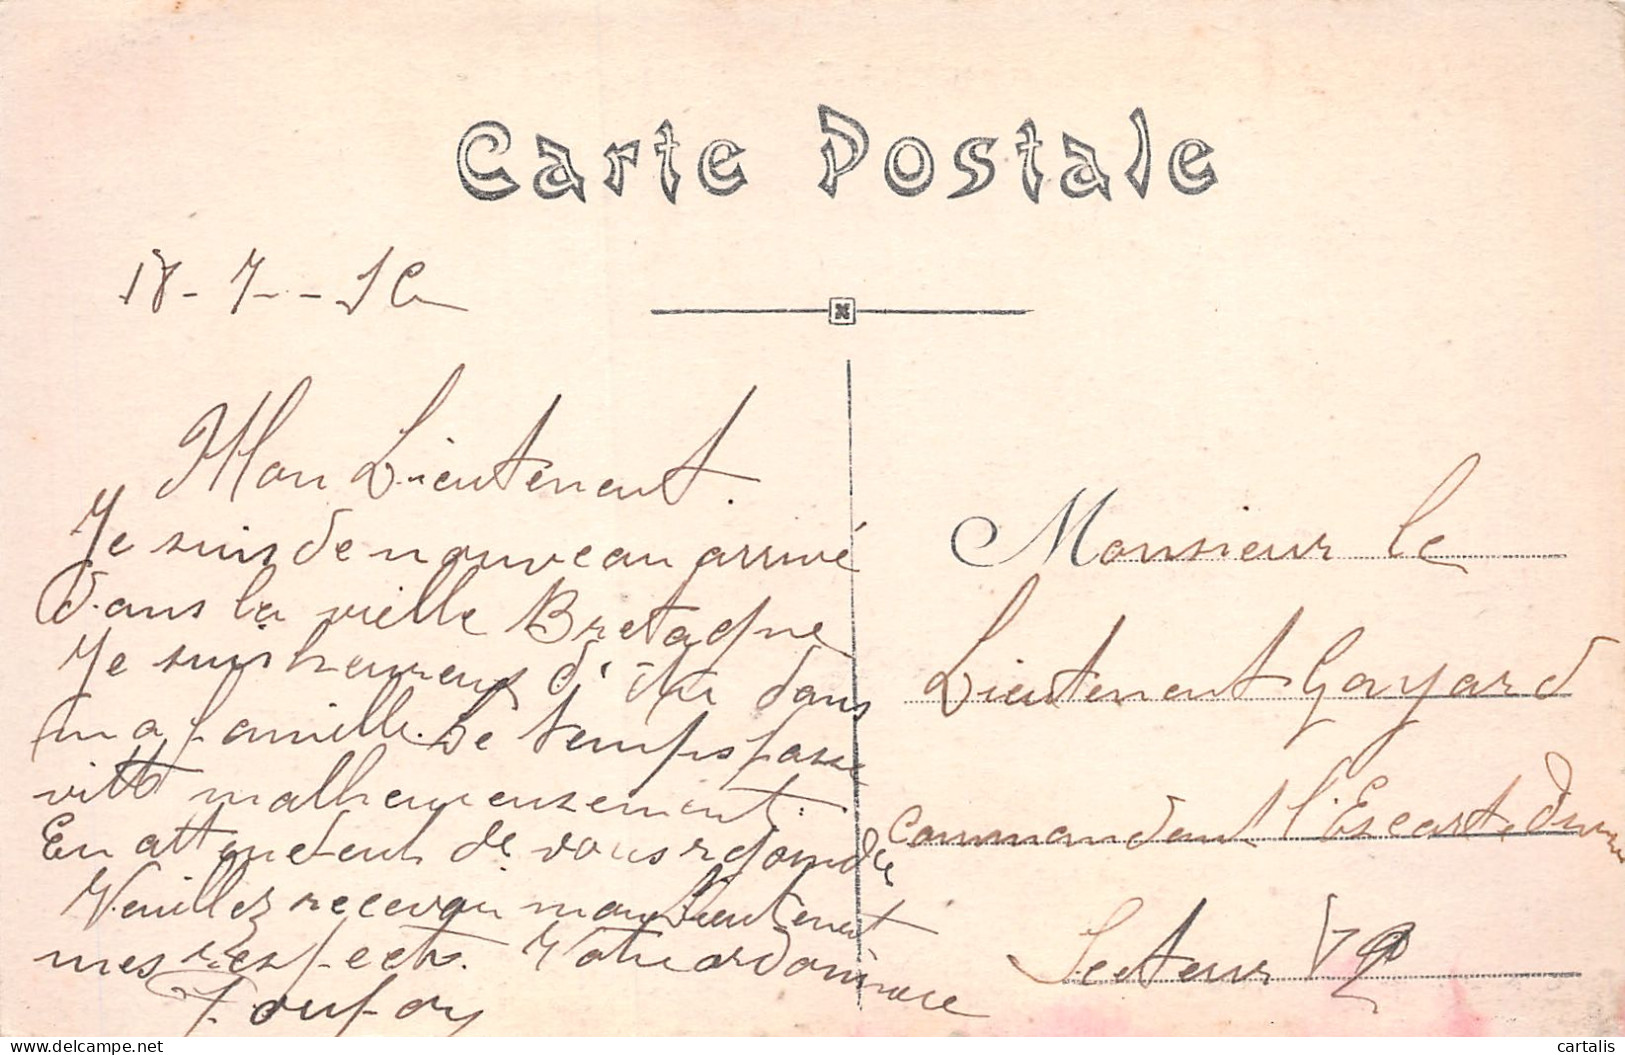 Carte Postale
18-7--16
Mon Lieutenent.
Je suis de nouveau arrivé
dans la vielle Bretagne
Je suis heureux d'être dans
ma famille. Le temps passe
vitte malheureusement.
En attendent de vous rejoindre
Veuillez recevoir mon Lieutenent
mes respects. Votre ordonnance
Monsieur le
Lieutenent Gayard
commandant l'Escart
Secteur
cartalis